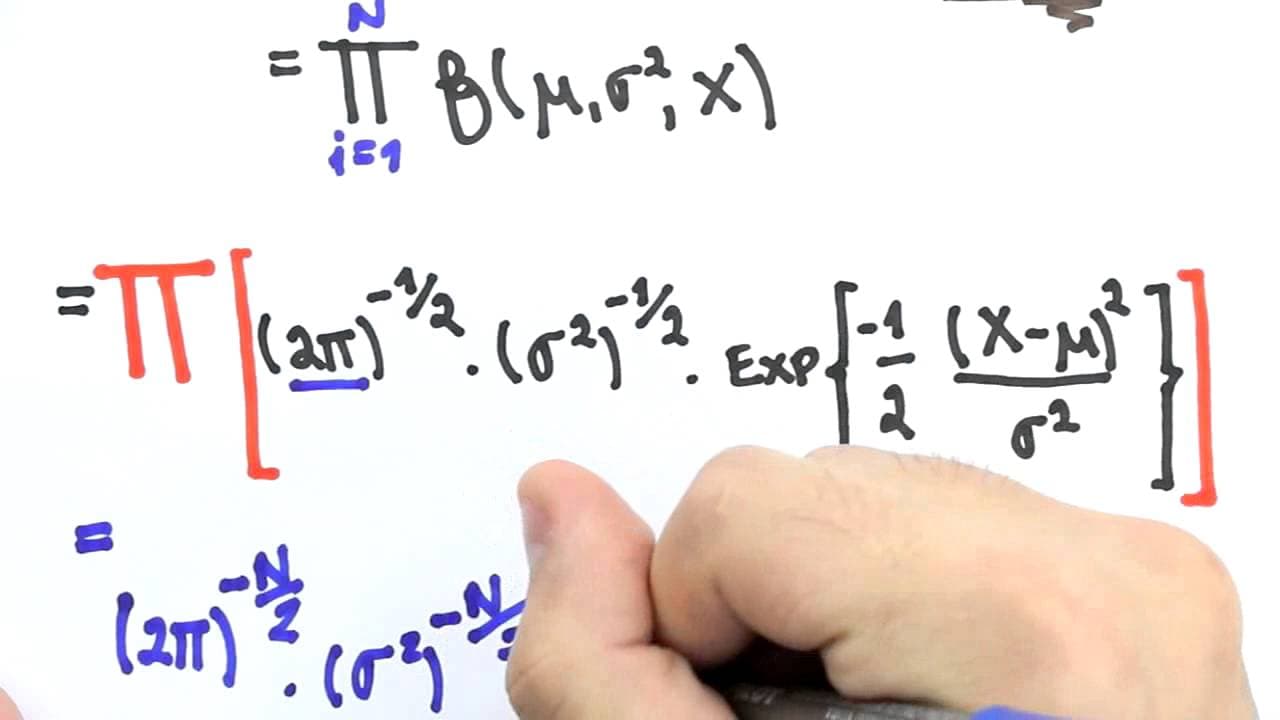 = ∏_{i=1}^{N} f(μ, σ², x)
= ∏ [(2π)^{-1/2} · (σ²)^{-1/2} · EXP{-1/2 (x-μ)²/σ²}]
=
(2π)^{-N/2} · (σ²)^{-N/2}